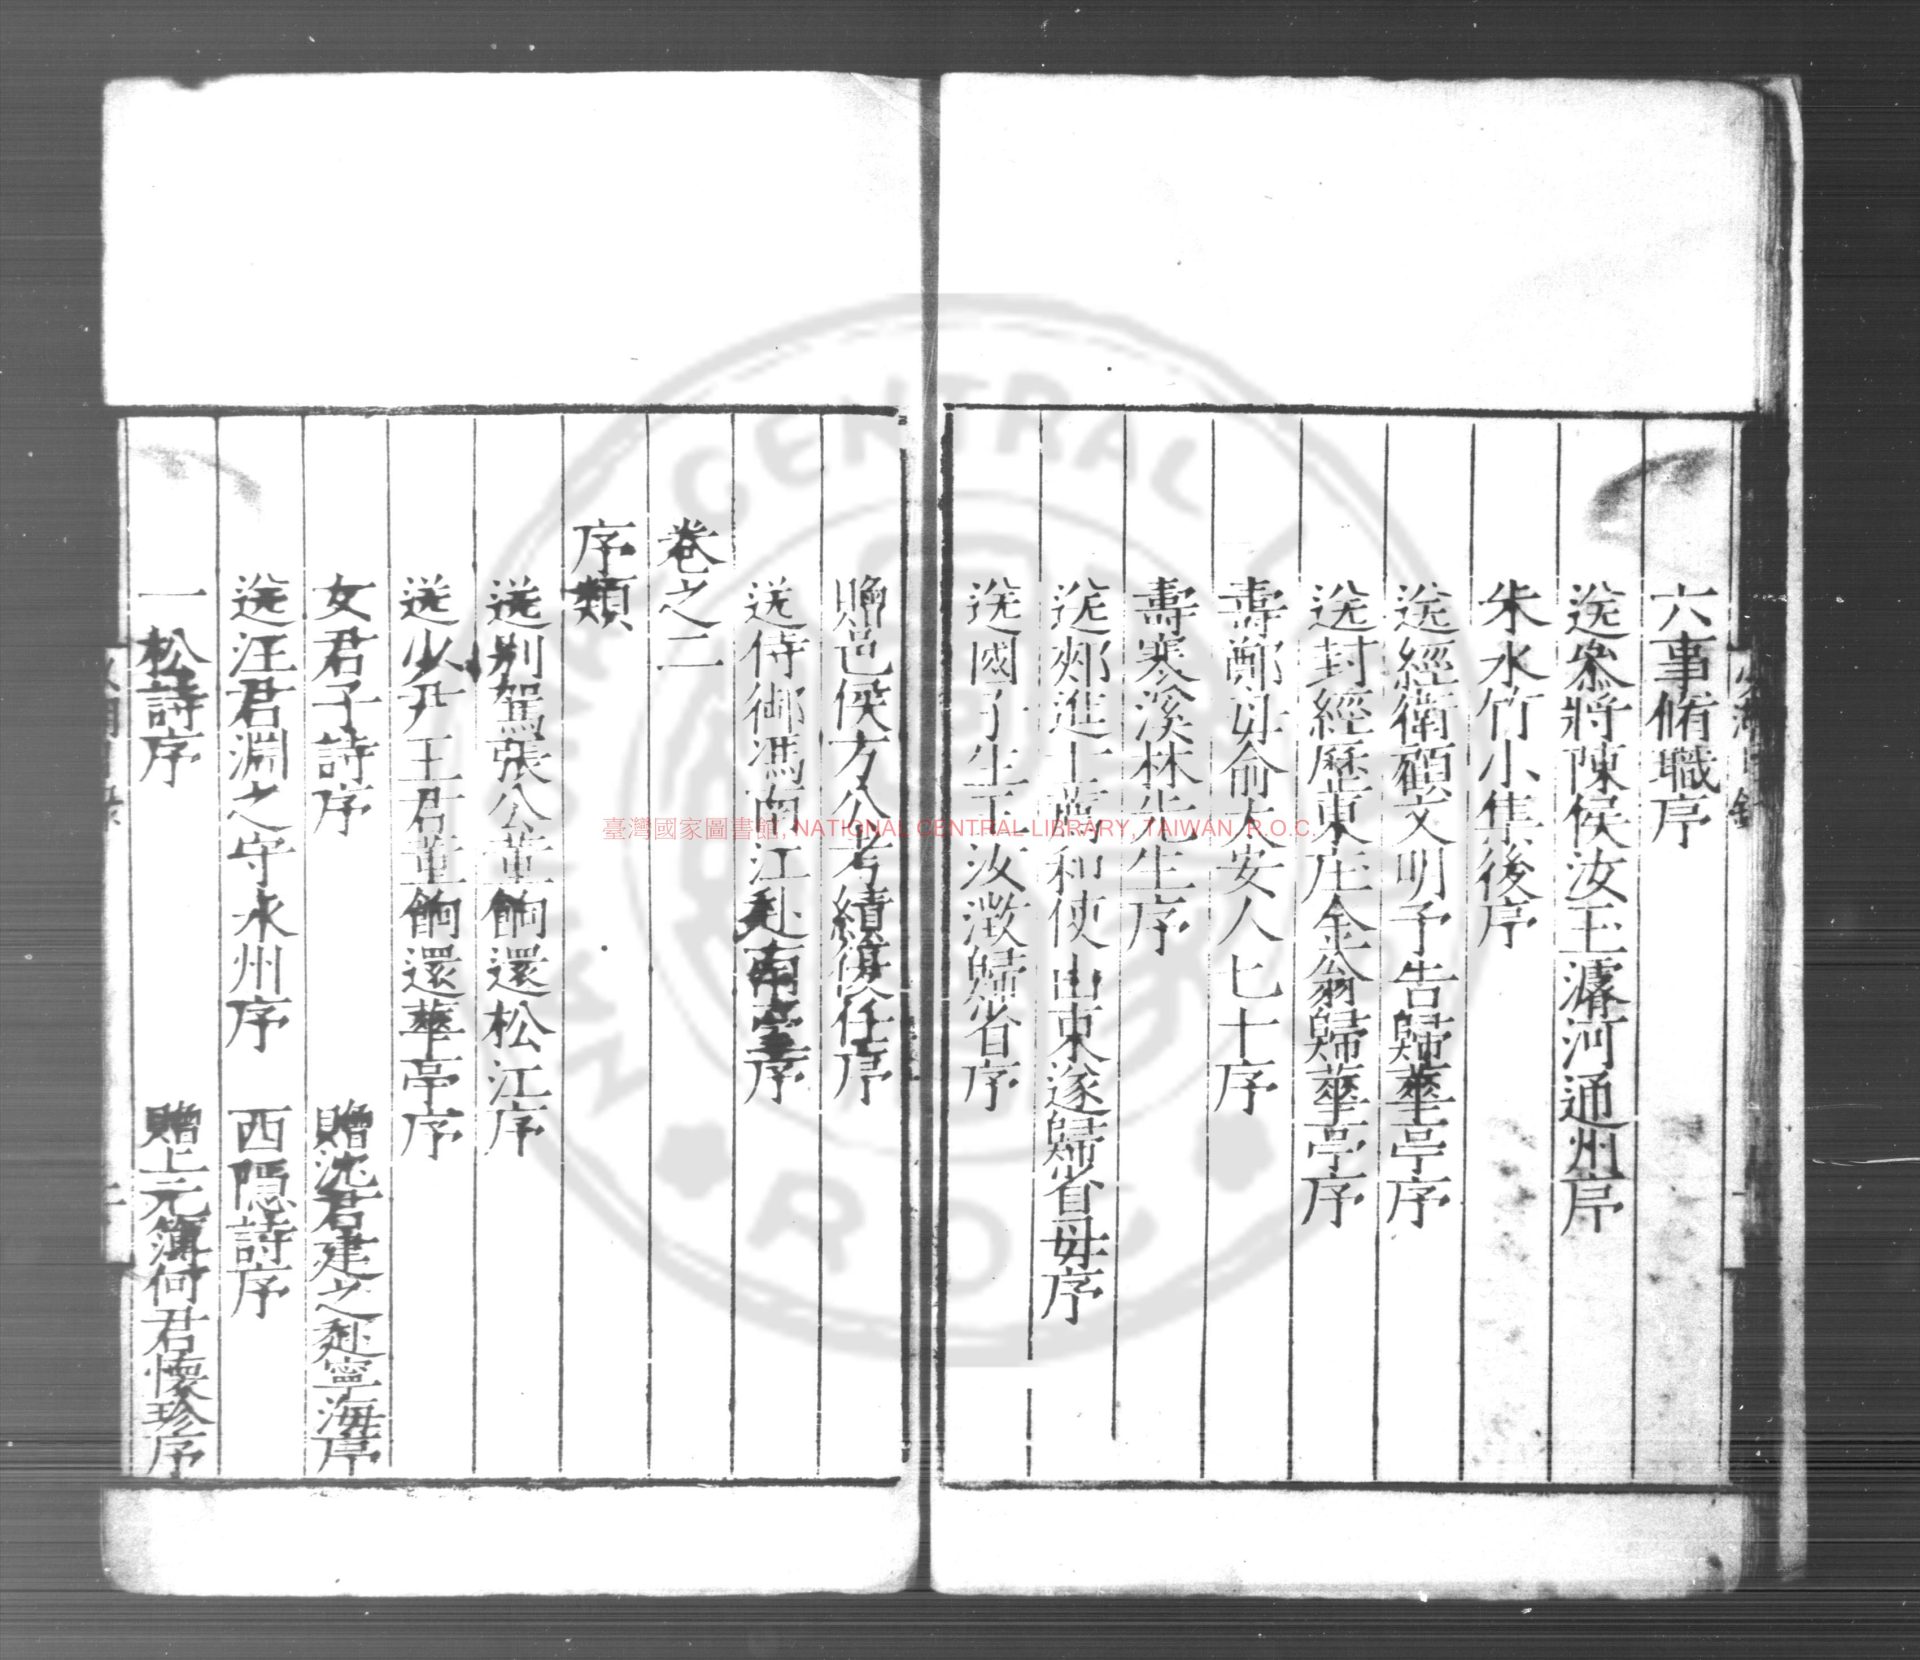 六事脩職序
送叅將陳侯汝玉濬河通州序
朱水竹小集後序
送經衛顧文明予告歸華亭序
送封經歷東庄金翁歸華亭序
壽鄺母俞太安人七十序
壽寒溪林先生序
送鄭進士萬和使山東遂歸省母序
送國子生王汝澂歸省序
贈邑侯方公考績復任序
送侍御馮南江赴南臺序
卷之二
序類
送別駕張公董餉還松江序
送少尹王君董餉還華亭序
女君子詩序 贈沈君建之赴寧海序
送汪君淵之守永州序 西隱詩序
一松詩序 贈上元簿何君懷珍序
臺灣國家圖書館, NATIONAL CENTRAL LIBRARY, TAIWAN, R.O.C.